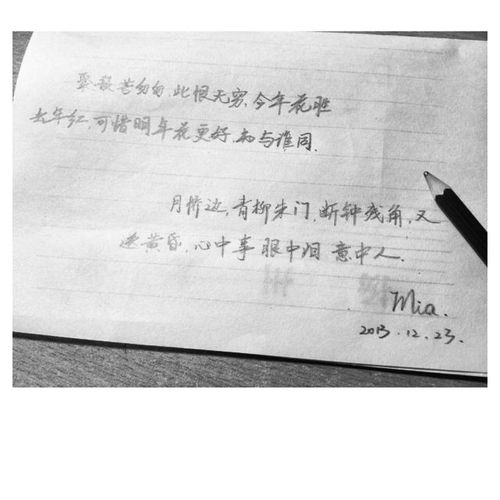 聚散苦匆匆,此恨无穷,今年花胜
去年红,可惜明年花更好,知与谁同.
月桥边,青柳朱门,断钟残角,又
送黄昏,心中事 眼中泪 意中人.
Mia.
2013.12.23.